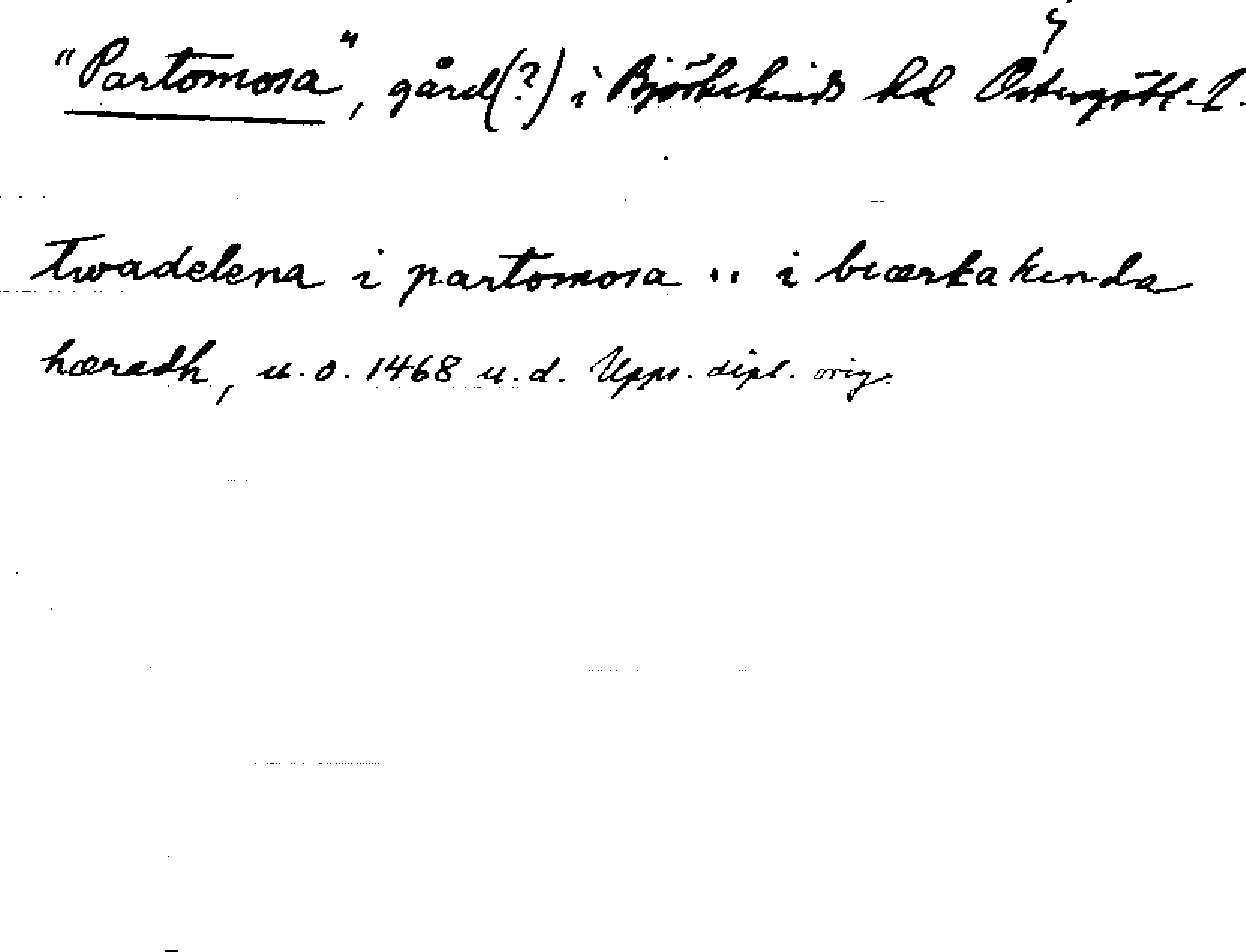 "Partomosa", gård(?) i Björkekinds hd Östergötl. l.
twadelena i partomosa .. i biærkakinda
hæradh, u.o. 1468 u.d. Upps. dipl. orig.